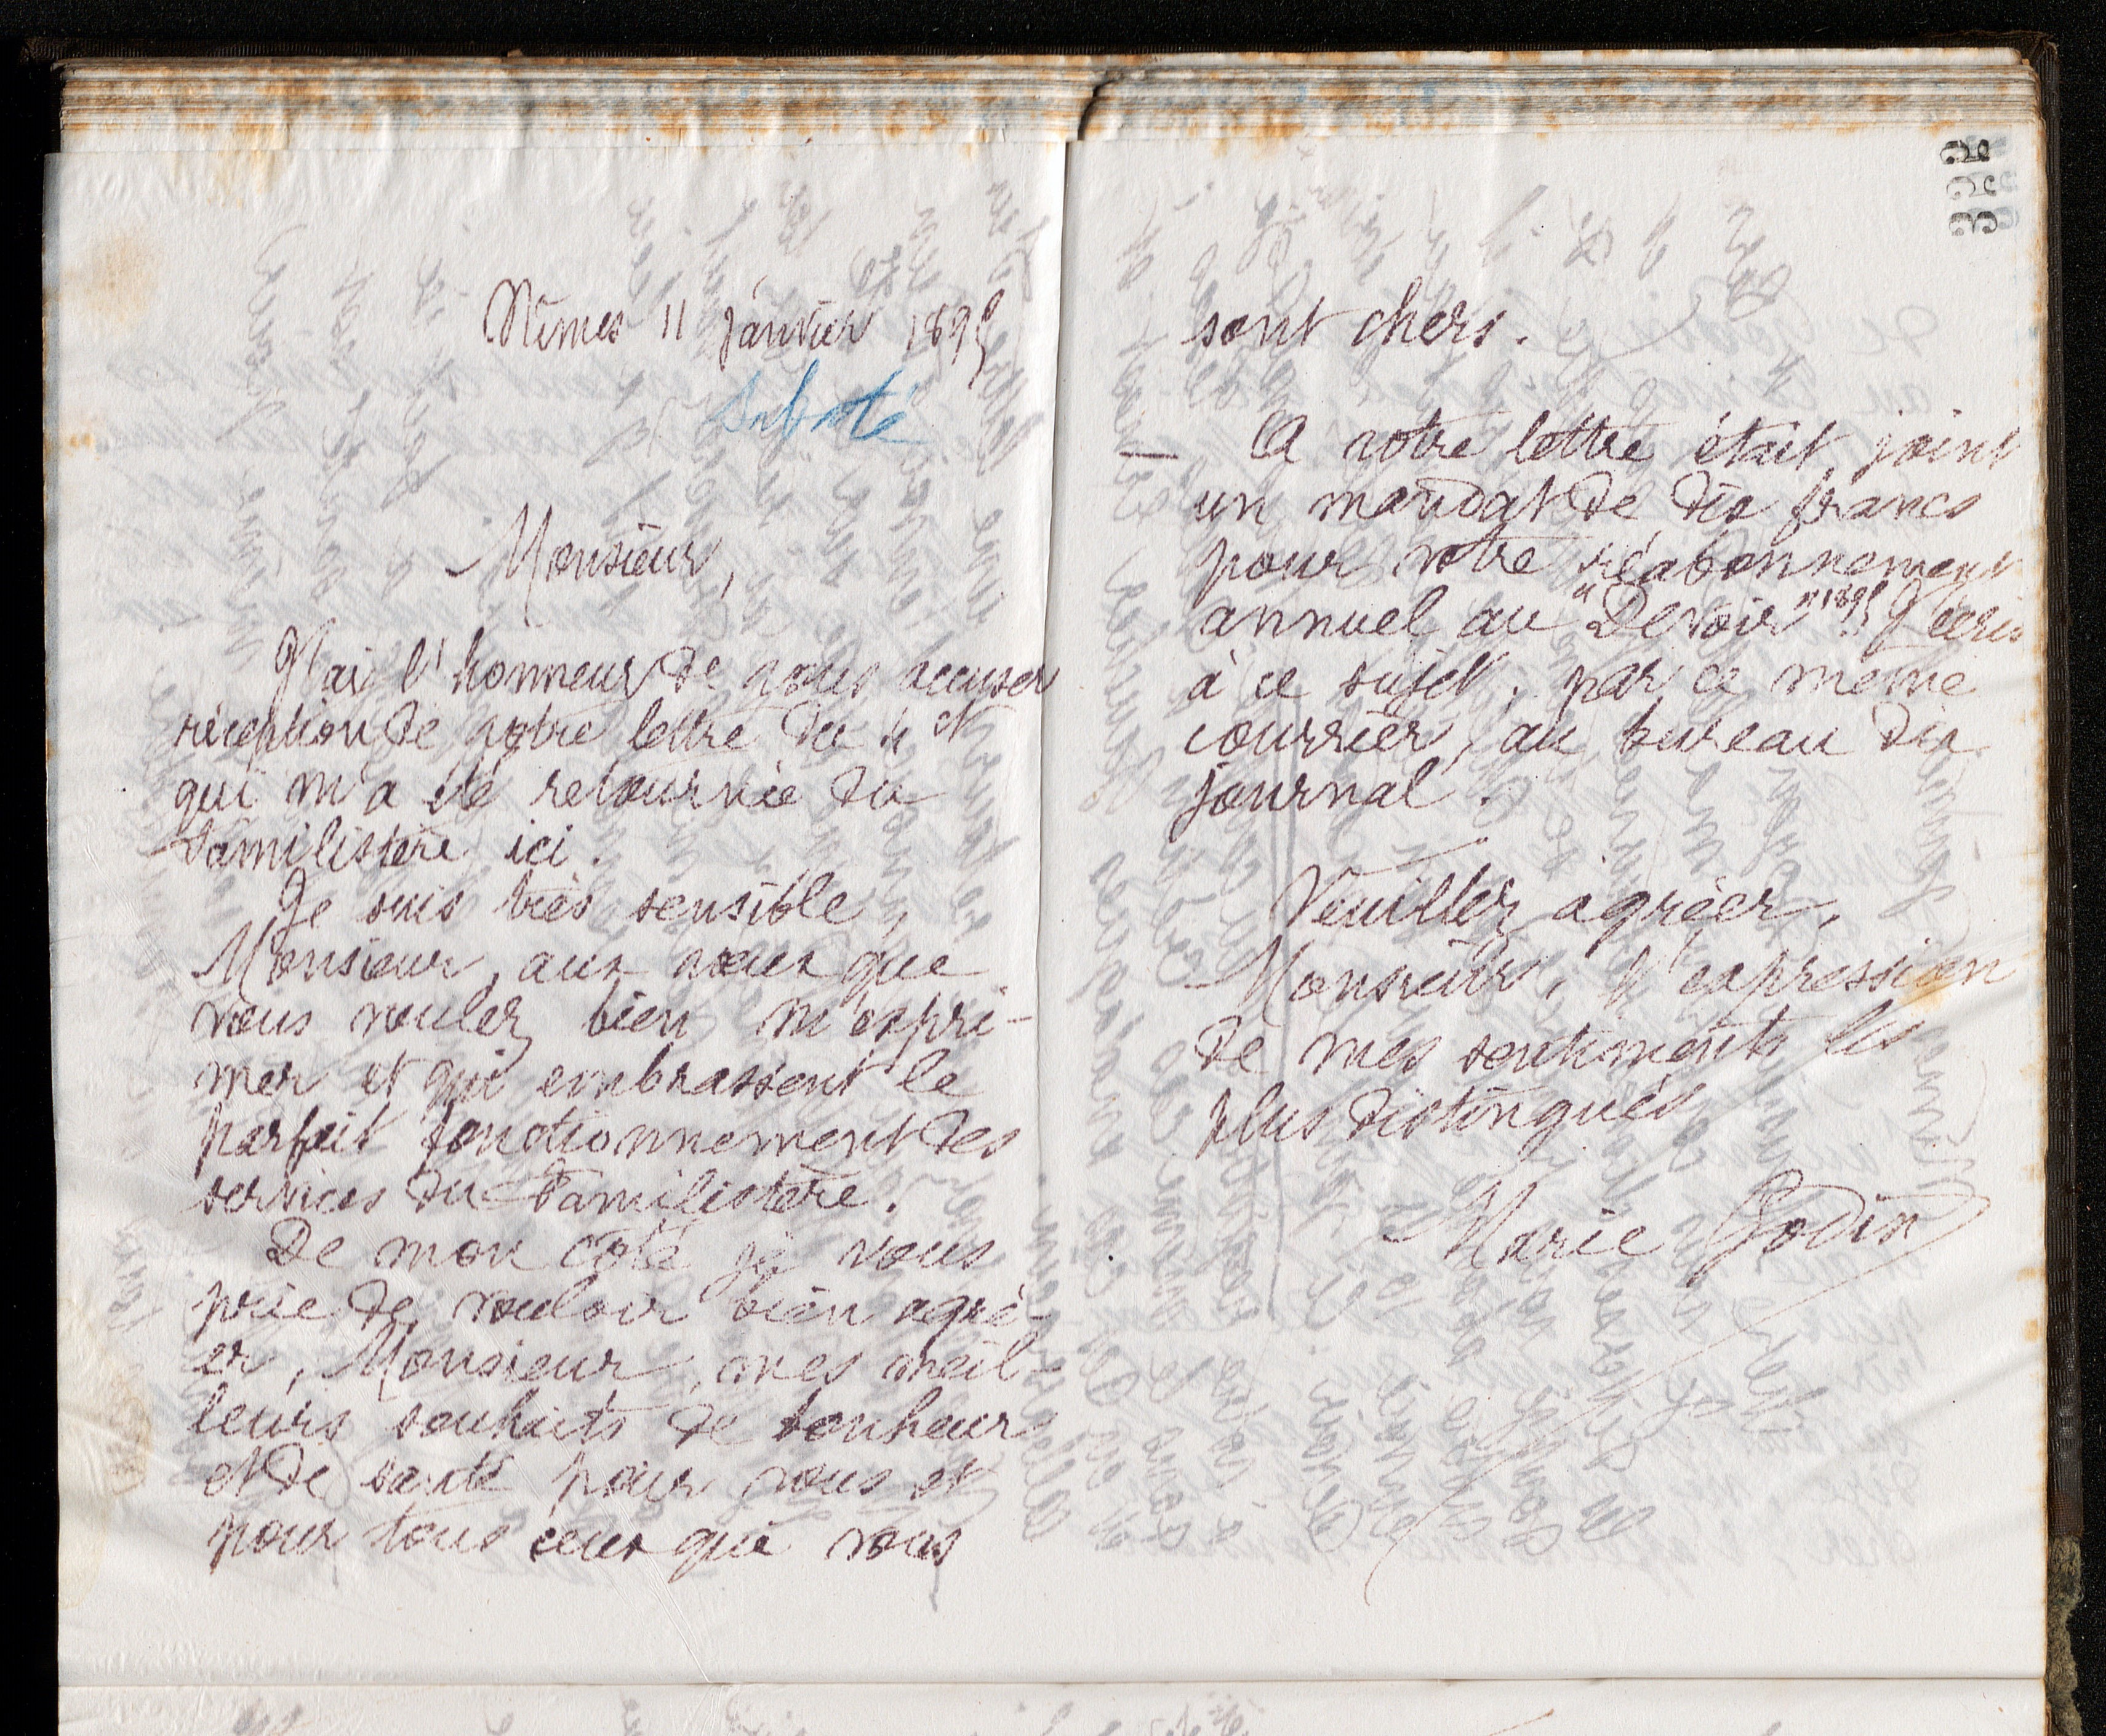 Nîmes 11 janvier 1895
Sabaté
Monsieur,
J'ai l'honneur de vous accuser
réception de votre lettre du 4 ct
qui m'a été retournée du
Familistère ici.
Je suis très sensible,
Monsieur, aux vœux que
vous voulez bien m'expri-
mer et qui embrassent le
parfait fonctionnement des
services du Familistère.
De mon côté je vous
prie de vouloir bien agré-
er, Monsieur, mes meil-
leurs souhaits de bonheur
et de santé pour vous et
pour tous ceux qui vous
322
sont chers.
— A votre lettre était joint
un mandat de dix francs
pour votre réabonnement
annuel au "Devoir" 1895. J'écris
à ce sujet, par ce même
courrier, au bureau du
journal.
Veuillez agréer,
Monsieur, l'expression
de mes sentiments les
plus distingués
Marie Godin